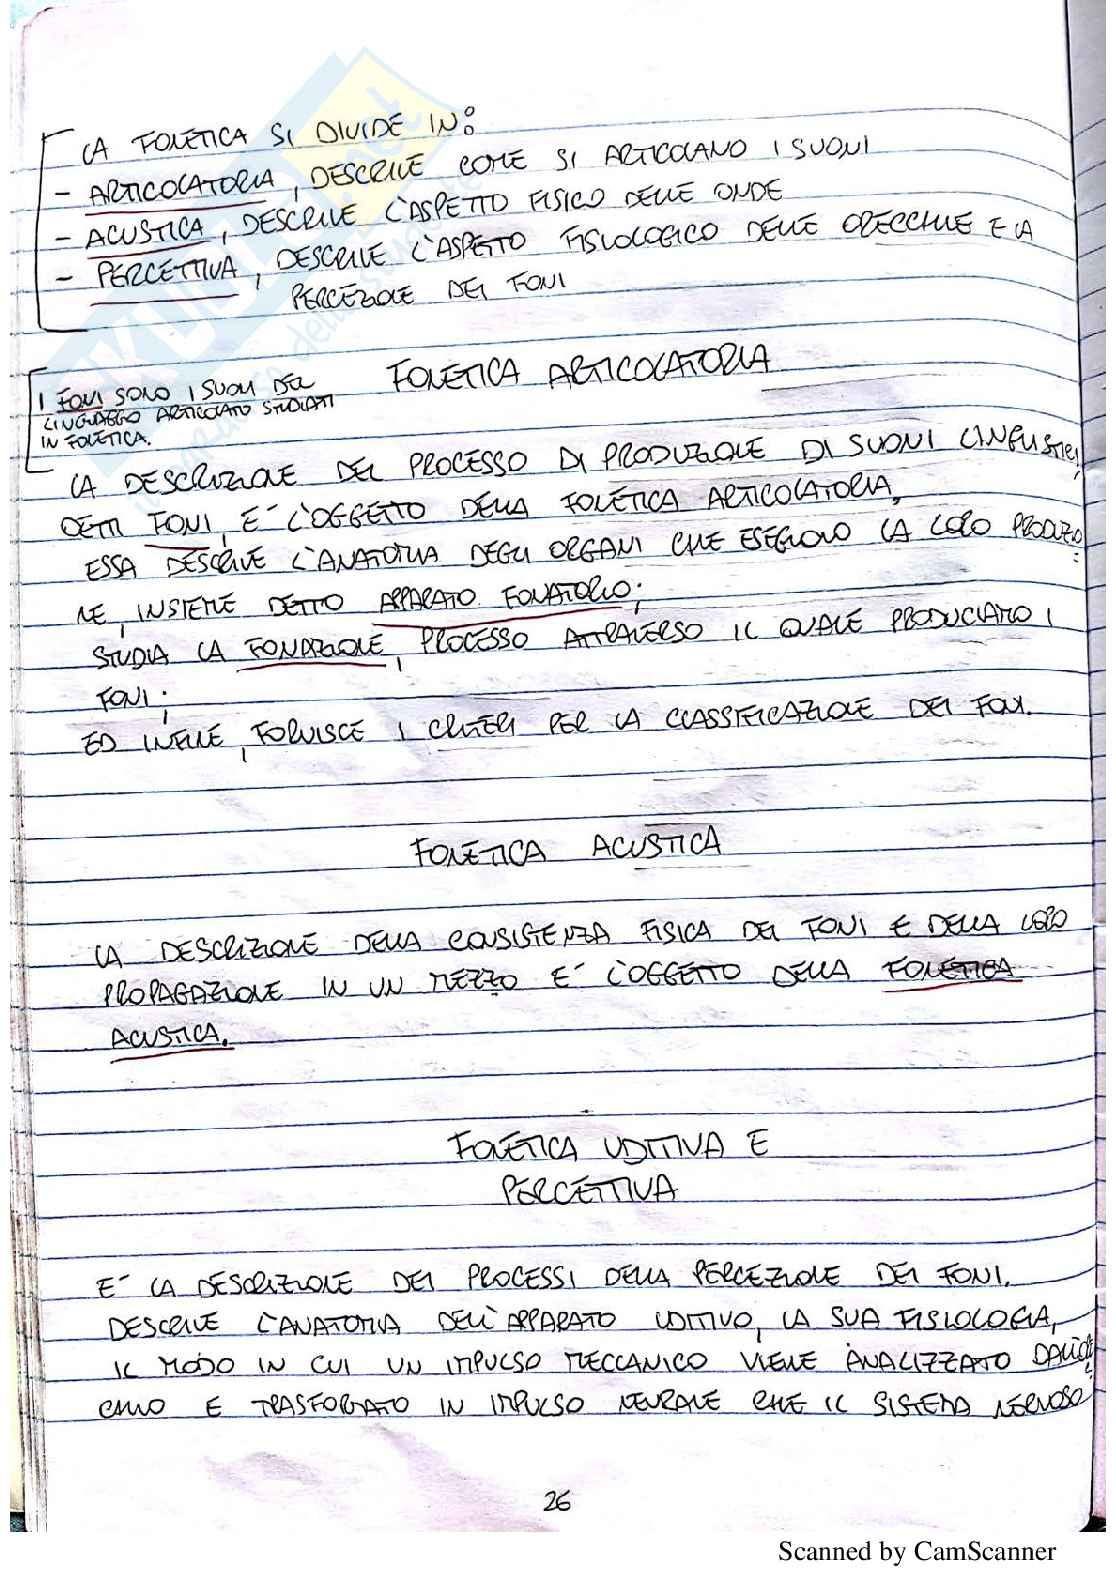 LA FONETICA SI DIVIDE IN:
- ARTICOLATORIA, DESCRIVE COME SI ARTICOLANO I SUONI
- ACUSTICA, DESCRIVE L'ASPETTO FISICO DELLE ONDE
- PERCETTIVA, DESCRIVE L'ASPETTO FISIOLOGICO DELLE ORECCHIE E LA
PERCEZIONE DEI FONI
FONETICA ARTICOLATORIA
I FONI SONO I SUONI DEL
LINGUAGGIO ARTICOLATO STUDIATI
IN FONETICA.
LA DESCRIZIONE DEL PROCESSO DI PRODUZIONE DI SUONI LINGUISTICI,
DETTI FONI, E' L'OGGETTO DELLA FONETICA ARTICOLATORIA.
ESSA DESCRIVE L'ANATOMIA DEGLI ORGANI CHE ESEGUONO LA LORO PRODUZIO
NE, INSIEME DETTO APPARATO FONATORIO;
STUDIA LA FONAZIONE, PROCESSO ATTRAVERSO IL QUALE PRODUCIAMO I
FONI;
ED INFINE, FORNISCE I CRITERI PER LA CLASSIFICAZIONE DEI FONI.
FONETICA ACUSTICA
LA DESCRIZIONE DELLA CONSISTENZA FISICA DEI FONI E DELLA LORO
PROPAGAZIONE IN UN MEZZO E' L'OGGETTO DELLA FONETICA
ACUSTICA.
FONETICA UDITIVA E
PERCETTIVA
E' LA DESCRIZIONE DEI PROCESSI DELLA PERCEZIONE DEI FONI.
DESCRIVE L'ANATOMIA DELL'APPARATO UDITIVO, LA SUA FISIOLOGIA,
IL MODO IN CUI UN IMPULSO MECCANICO VIENE ANALIZZATO DALL'OREC
CHIO E TRASFORMATO IN IMPULSO NEURALE CHE IL SISTEMA NERVOSO
26
Scanned by CamScanner